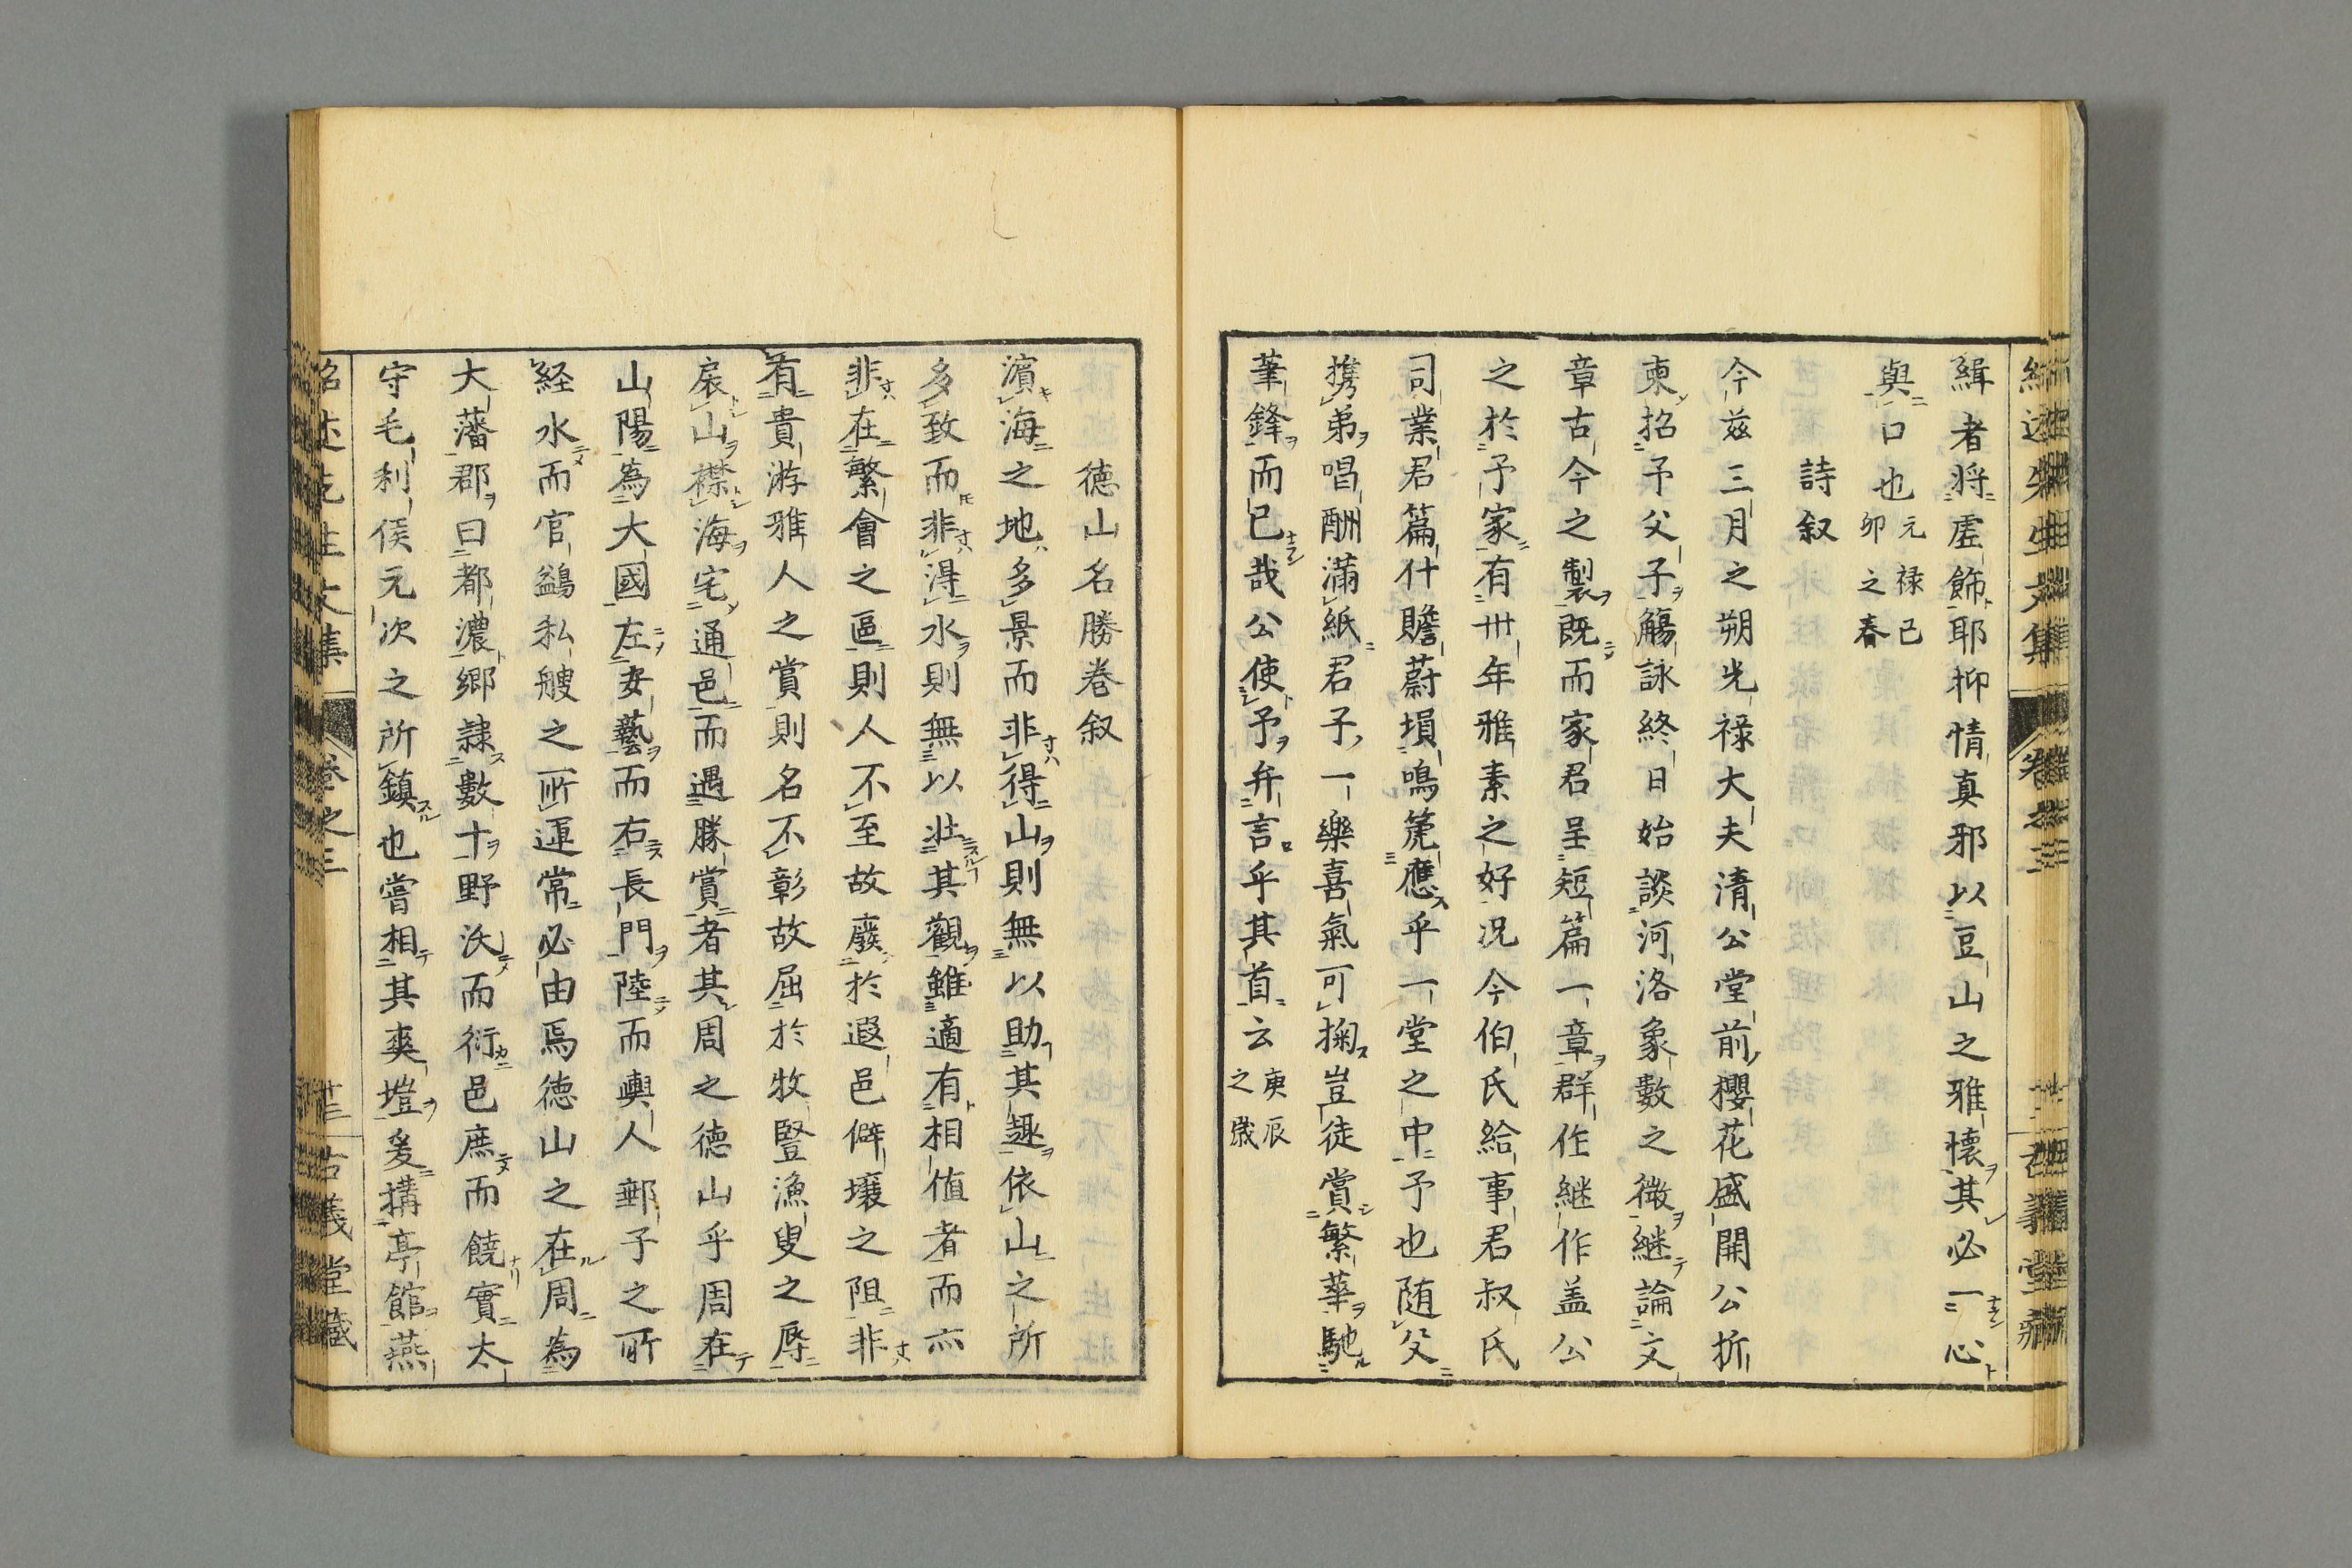 緝者将虚飾耶抑情真邪以豆山之雅懐其必一心
與口也元禄己
卯之春
詩叙
今茲三月之朔光禄大夫清公堂前櫻花盛開公折
柬招予父子觴詠終日始談河洛象數之微継論文
章古今之製既而家君呈短篇一章群作継作盖公
之於予家有卅年雅素之好况今伯氏給事君叔氏
司業君篇什贍蔚塤鳴篪應乎一堂之中予也随父
携弟唱酬滿紙君子一樂喜氣可掬豈徒賞繁華馳
筆鋒而已哉公使予弁言乎其首云庚辰
之歳
徳山名勝巻叙
濱海之地多景而非得山則無以助其趣依山之所
多致而非得水則無以壮其觀雖適有相值者而亦
非在繁會之區則人不至故廢於遐邑僻壤之阻非
有貴游雅人之賞則名不彰故屈於牧豎漁叟之辱
扆山襟海宅通邑而遇勝賞者其周之徳山乎周在
山陽為大國左安藝而右長門陸而輿人郵子之所
経水而官鷁私艘之所運常必由焉徳山之在周為
大藩郡曰都濃郷隷數十野沃而衍邑庶而饒實太
守毛利侯元次之所鎮也嘗相其爽塏爰搆亭館燕
紹述先生文集 巻之三 廿三 古義堂藏